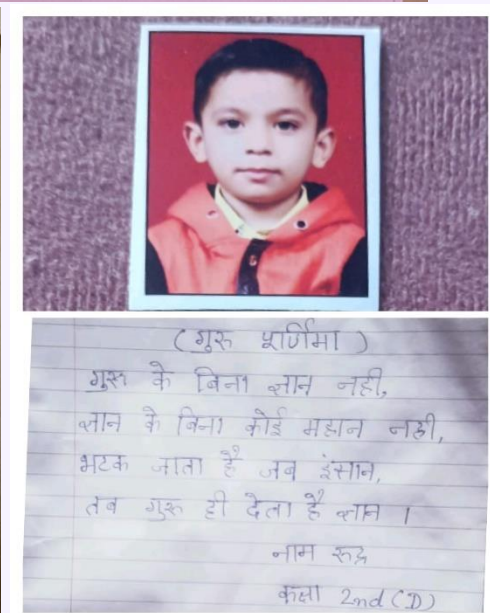 ( गुरु पूर्णिमा )
गुरू के बिना ज्ञान नही,
ज्ञान के बिना कोई महान नही,
भटक जाता है जब इंसान,
तब गुरू ही देता है ज्ञान ।
नाम रूद्र
कक्षा 2nd (D)